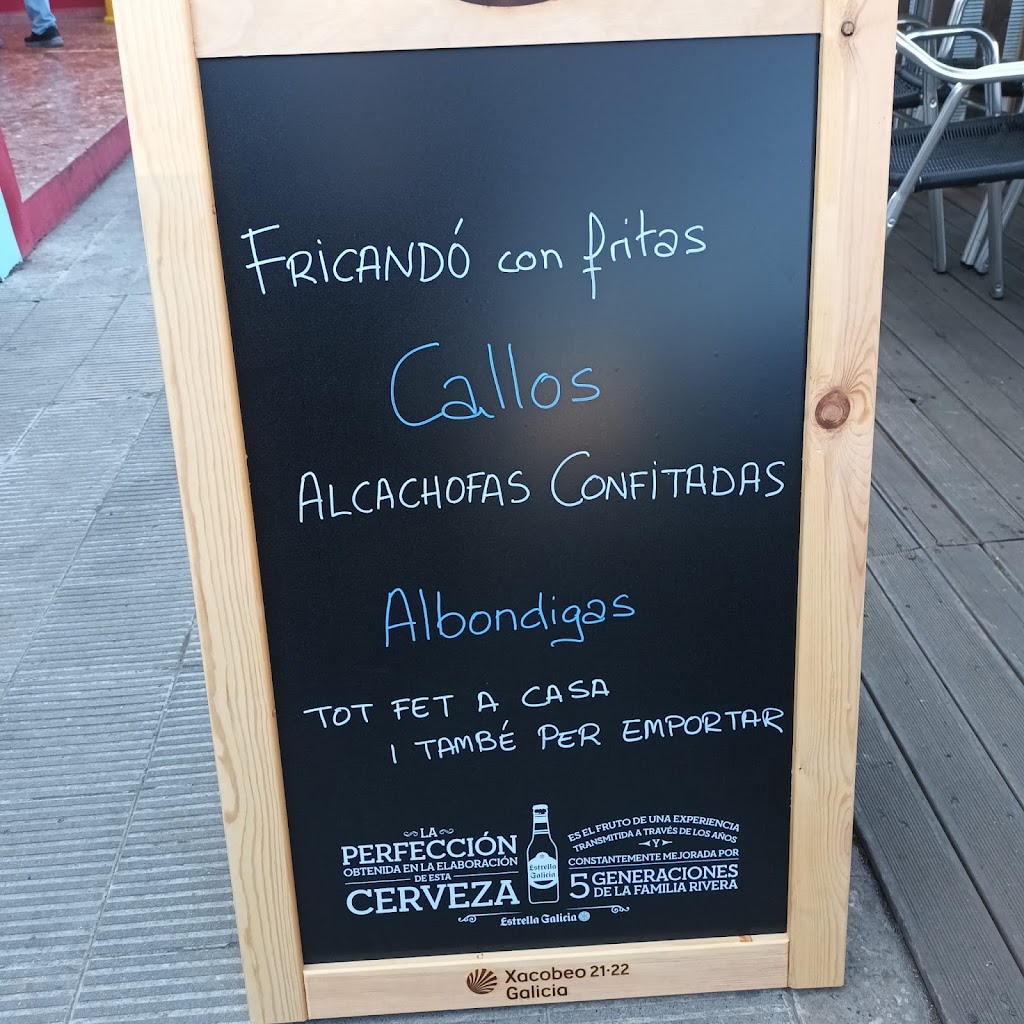 FRICANDÓ con fritas
Callos
ALCACHOFAS CONFITADAS
Albondigas
TOT FET A CASA
I TAMBÉ PER EMPORTAR
LA
PERFECCIÓN
OBTENIDA EN LA ELABORACIÓN
DE ESTA
CERVEZA
Estrella
Galicia
ES EL FRUTO DE UNA EXPERIENCIA
TRANSMITIDA A TRAVÉS DE LOS AÑOS
Y
CONSTANTEMENTE MEJORADA POR
5 GENERACIONES
DE LA FAMILIA RIVERA
Estrella Galicia
Xacobeo 21·22
Galicia